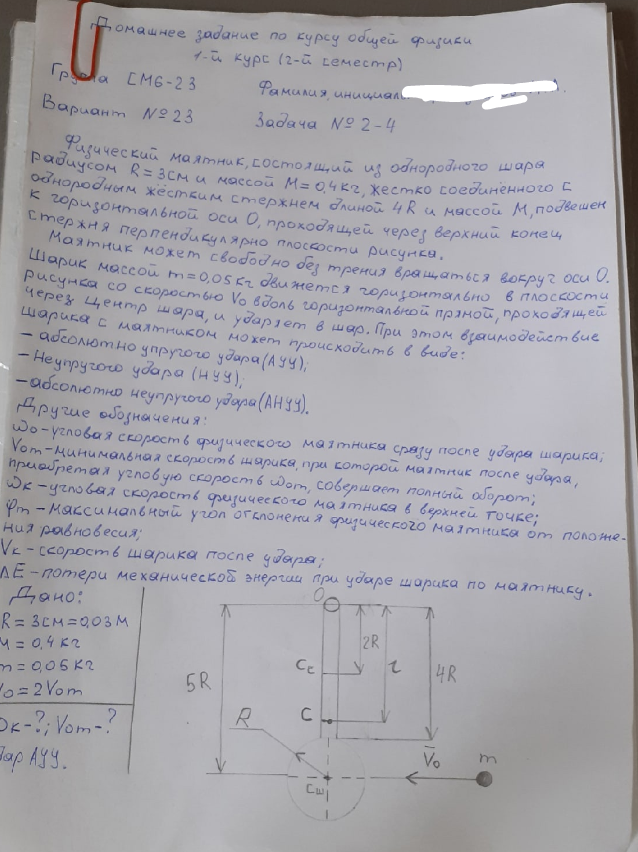 Домашнее задание по курсу общей физики
1-й курс (2-й семестр)
Группа СМ6-23 Фамилия, инициал
Вариант №23 Задача №2-4
Физический маятник, состоящий из однородного шара
радиусом R=3см и массой M=0,4кг, жестко соединённого с
однородным жёстким стержнем длиной 4R и массой M, подвешен
к горизонтальной оси О, проходящей через верхний конец
стержня перпендикулярно плоскости рисунка.
Маятник может свободно без трения вращаться вокруг оси О.
Шарик массой m=0,05кг движется горизонтально в плоскости
рисунка со скоростью V₀ вдоль горизонтальной прямой, проходящей
через центр шара, и ударяет в шар. При этом взаимодействие
шарика с маятником может происходить в виде:
– абсолютно упругого удара (АУУ);
– Неупругого удара (НУУ);
– абсолютно неупругого удара (АНУУ).
Другие обозначения:
ω₀-угловая скорость физического маятника сразу после удара шарика;
V₀m-минимальная скорость шарика, при которой маятник после удара,
приобретая угловую скорость ω₀m, совершает полный оборот;
ωк-угловая скорость физического маятника в верхней точке;
φm-максимальный угол отклонения физического маятника от положе-
ния равновесия;
Vк-скорость шарика после удара;
ΔE-потери механической энергии при ударе шарика по маятнику.
Дано:
R=3см=0,03м
M=0,4кг
m=0,05кг
V₀=2V₀m
ωк-?; V₀m-?
Удар АУУ.
O
2R
Cс
5R
l
4R
C
R
V̄₀
m
Cш